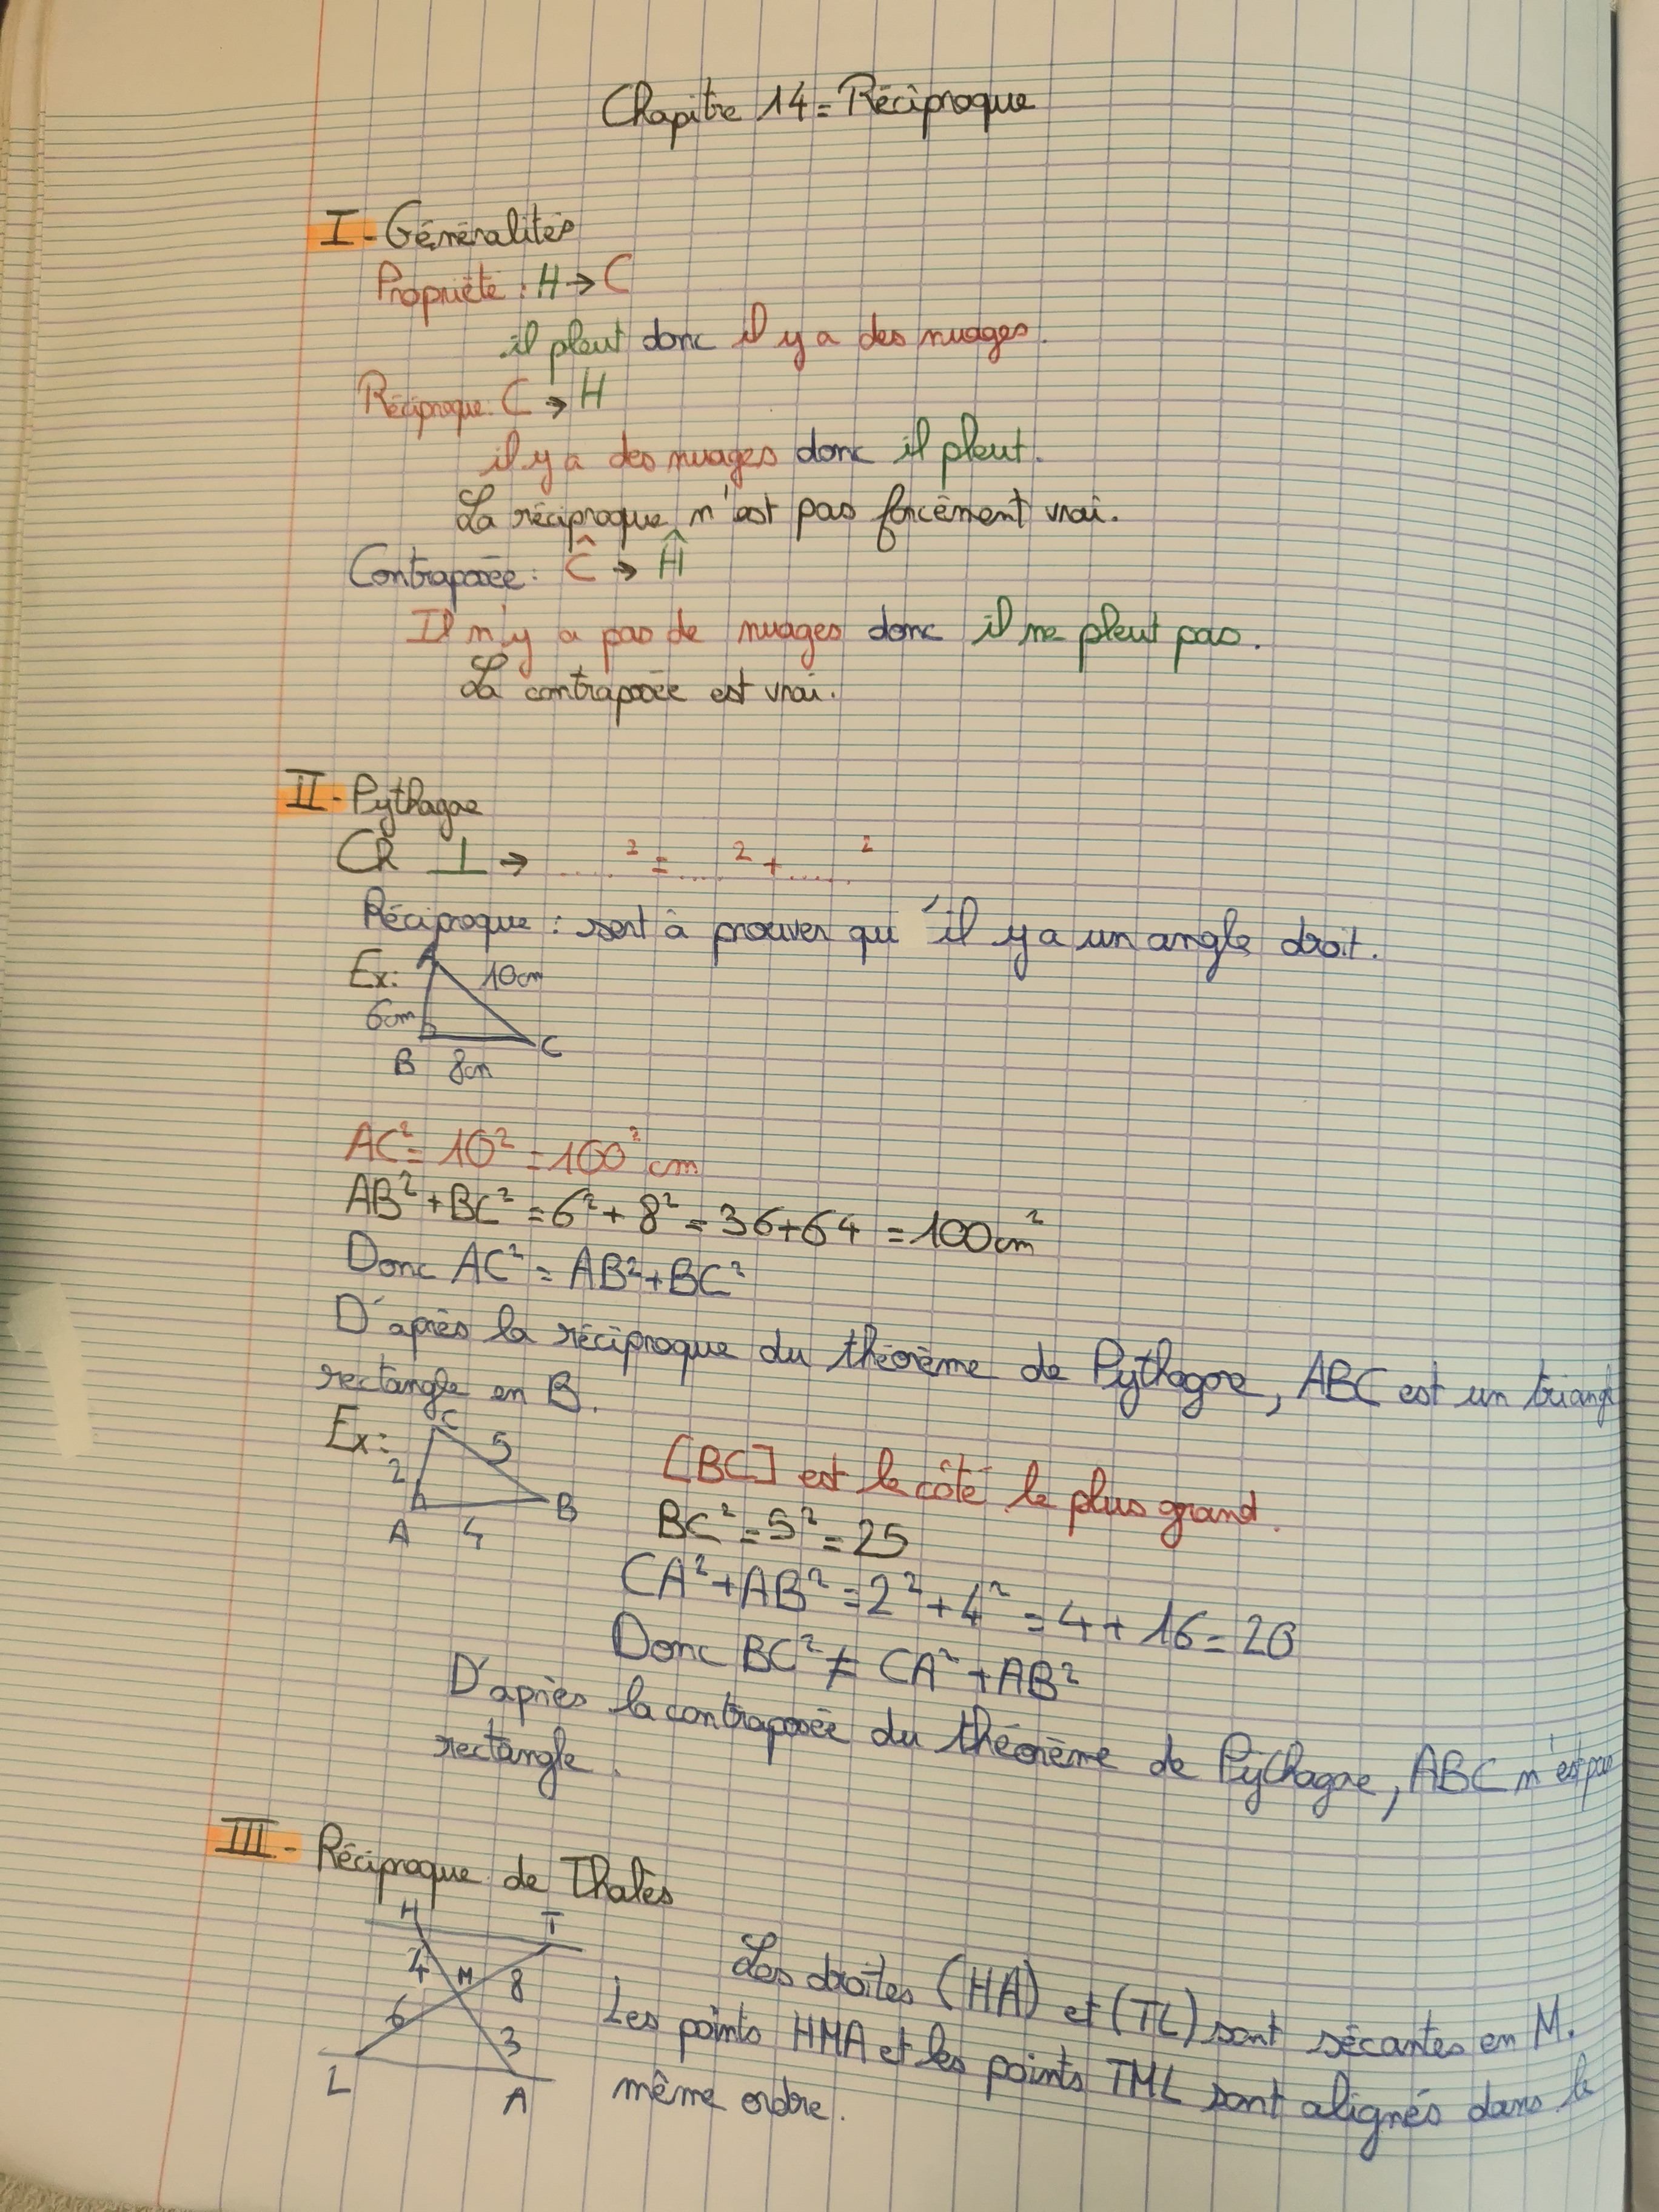 Chapitre 14 = Réciproque
I - Généralités
Propriété : H → C
il pleut donc il y a des nuages.
Réciproque : C → H
il y a des nuages donc il pleut.
La réciproque n'est pas forcément vrai.
Contraposée : Ĉ → Ĥ
Il n'y a pas de nuages donc il ne pleut pas.
La contraposée est vrai.
II - Pythagore
CR ⊥ → .....² = .....² + .....²
Réciproque : sert à prouver qu'il y a un angle droit.
Ex: A 10cm
6cm
C
B 8cm
AC² = 10² = 100² cm
AB² + BC² = 6² + 8² = 36 + 64 = 100cm²
Donc AC² = AB² + BC²
D'après la réciproque du théorème de Pythagore, ABC est un triangl
rectangle en B.
Ex: C 5
2
B
A 4
[BC] est le côté le plus grand.
BC² = 5² = 25
CA² + AB² = 2² + 4² = 4 + 16 = 20
Donc BC² ≠ CA² + AB²
D'après la contraposée du théorème de Pythagore, ABC n'est pas
rectangle.
III - Réciproque de Thalès
H T
4 M 8
6 3
L A
Les droites (HA) et (TL) sont sécantes en M.
Les points HMA et les points TML sont alignés dans le
même ordre.